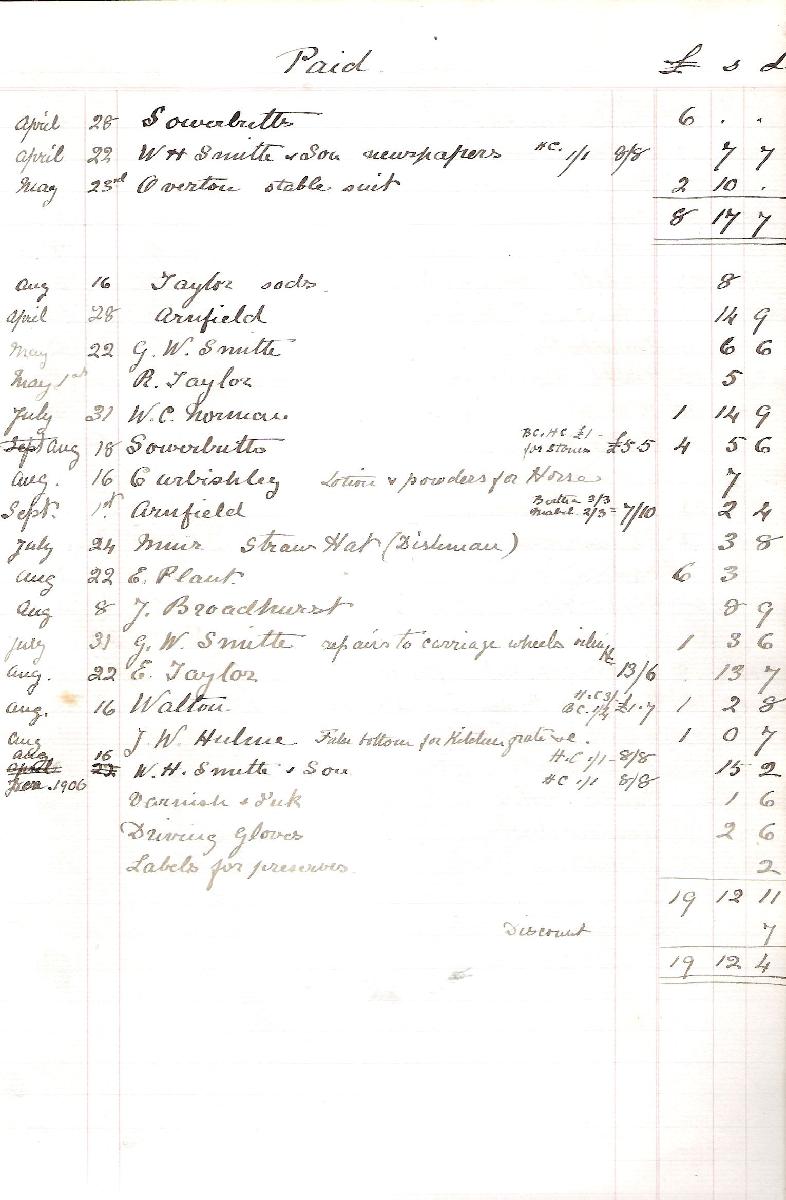 Paid £ s d
April 28 Sowerbutts 6 . .
April 22 W H Smith & Son newspapers HC. 1/1 8/8 7 7
May 23rd Overton stable suit 2 10 .
8 17 7
Aug 16 Taylor sods 8
April 28 Arnfield 14 9
May 22 G. W. Smith 6 6
May 1st R. Taylor 5
July 31 W. C. Norman 1 14 9
Sept Aug 18 Sowerbutts BC. HC £1 - for Stones £5 5 4 5 6
Aug. 16 Curbishley Lotion & powders for Horse 7
Sept. 1st Arnfield Bertha 3/3 Mabel 2/3 = 7/10 2 4
July 24 Muir Straw Hat (Dishman) 3 8
Aug 22 E. Plant 6 3
Aug 8 J. Broadhurst 8 9
July 31 G. W. Smith repairs to carriage wheels 1 3 6
Aug. 22 E. Taylor 13/6 13 7
Aug. 16 Walton H.C 3/1 BC. 1/4 £1.7 1 2 8
Aug J. W. Hulme False bottom for Kitchen grate 1 0 7
Aug 16 April 22 W. H. Smith & Son H.C 1/1 - 8/8 15 2
1906 HC 1/1 8/8
Varnish & Ink 1 6
Driving Gloves 2 6
Labels for preserves 2
19 12 11
Discount 7
19 12 4